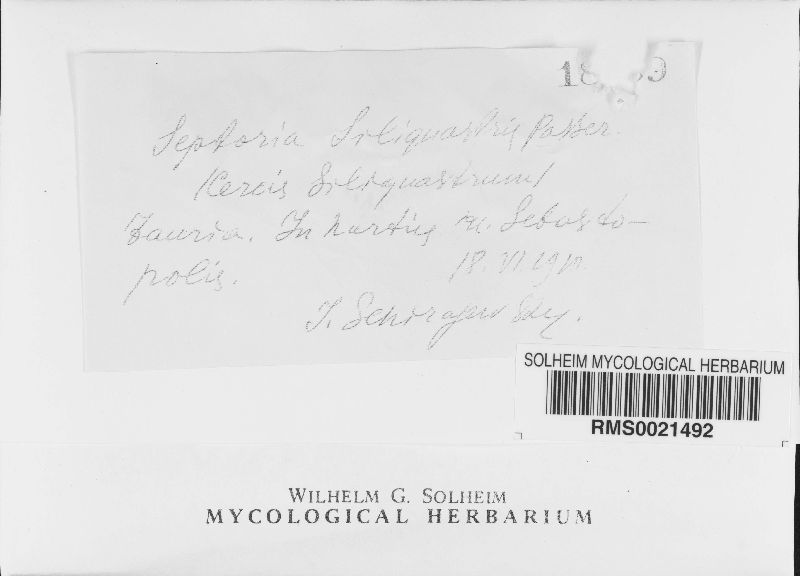 Septoria Siliquastri Passer.
(Cercis Siliquastrum)
Tauria. In hortis u. Sebasto-
polis. 18. VI. 1911.
SOLHEIM MYCOLOGICAL HERBARIUM
RMS0021492
WILHELM G. SOLHEIM
MYCOLOGICAL HERBARIUM